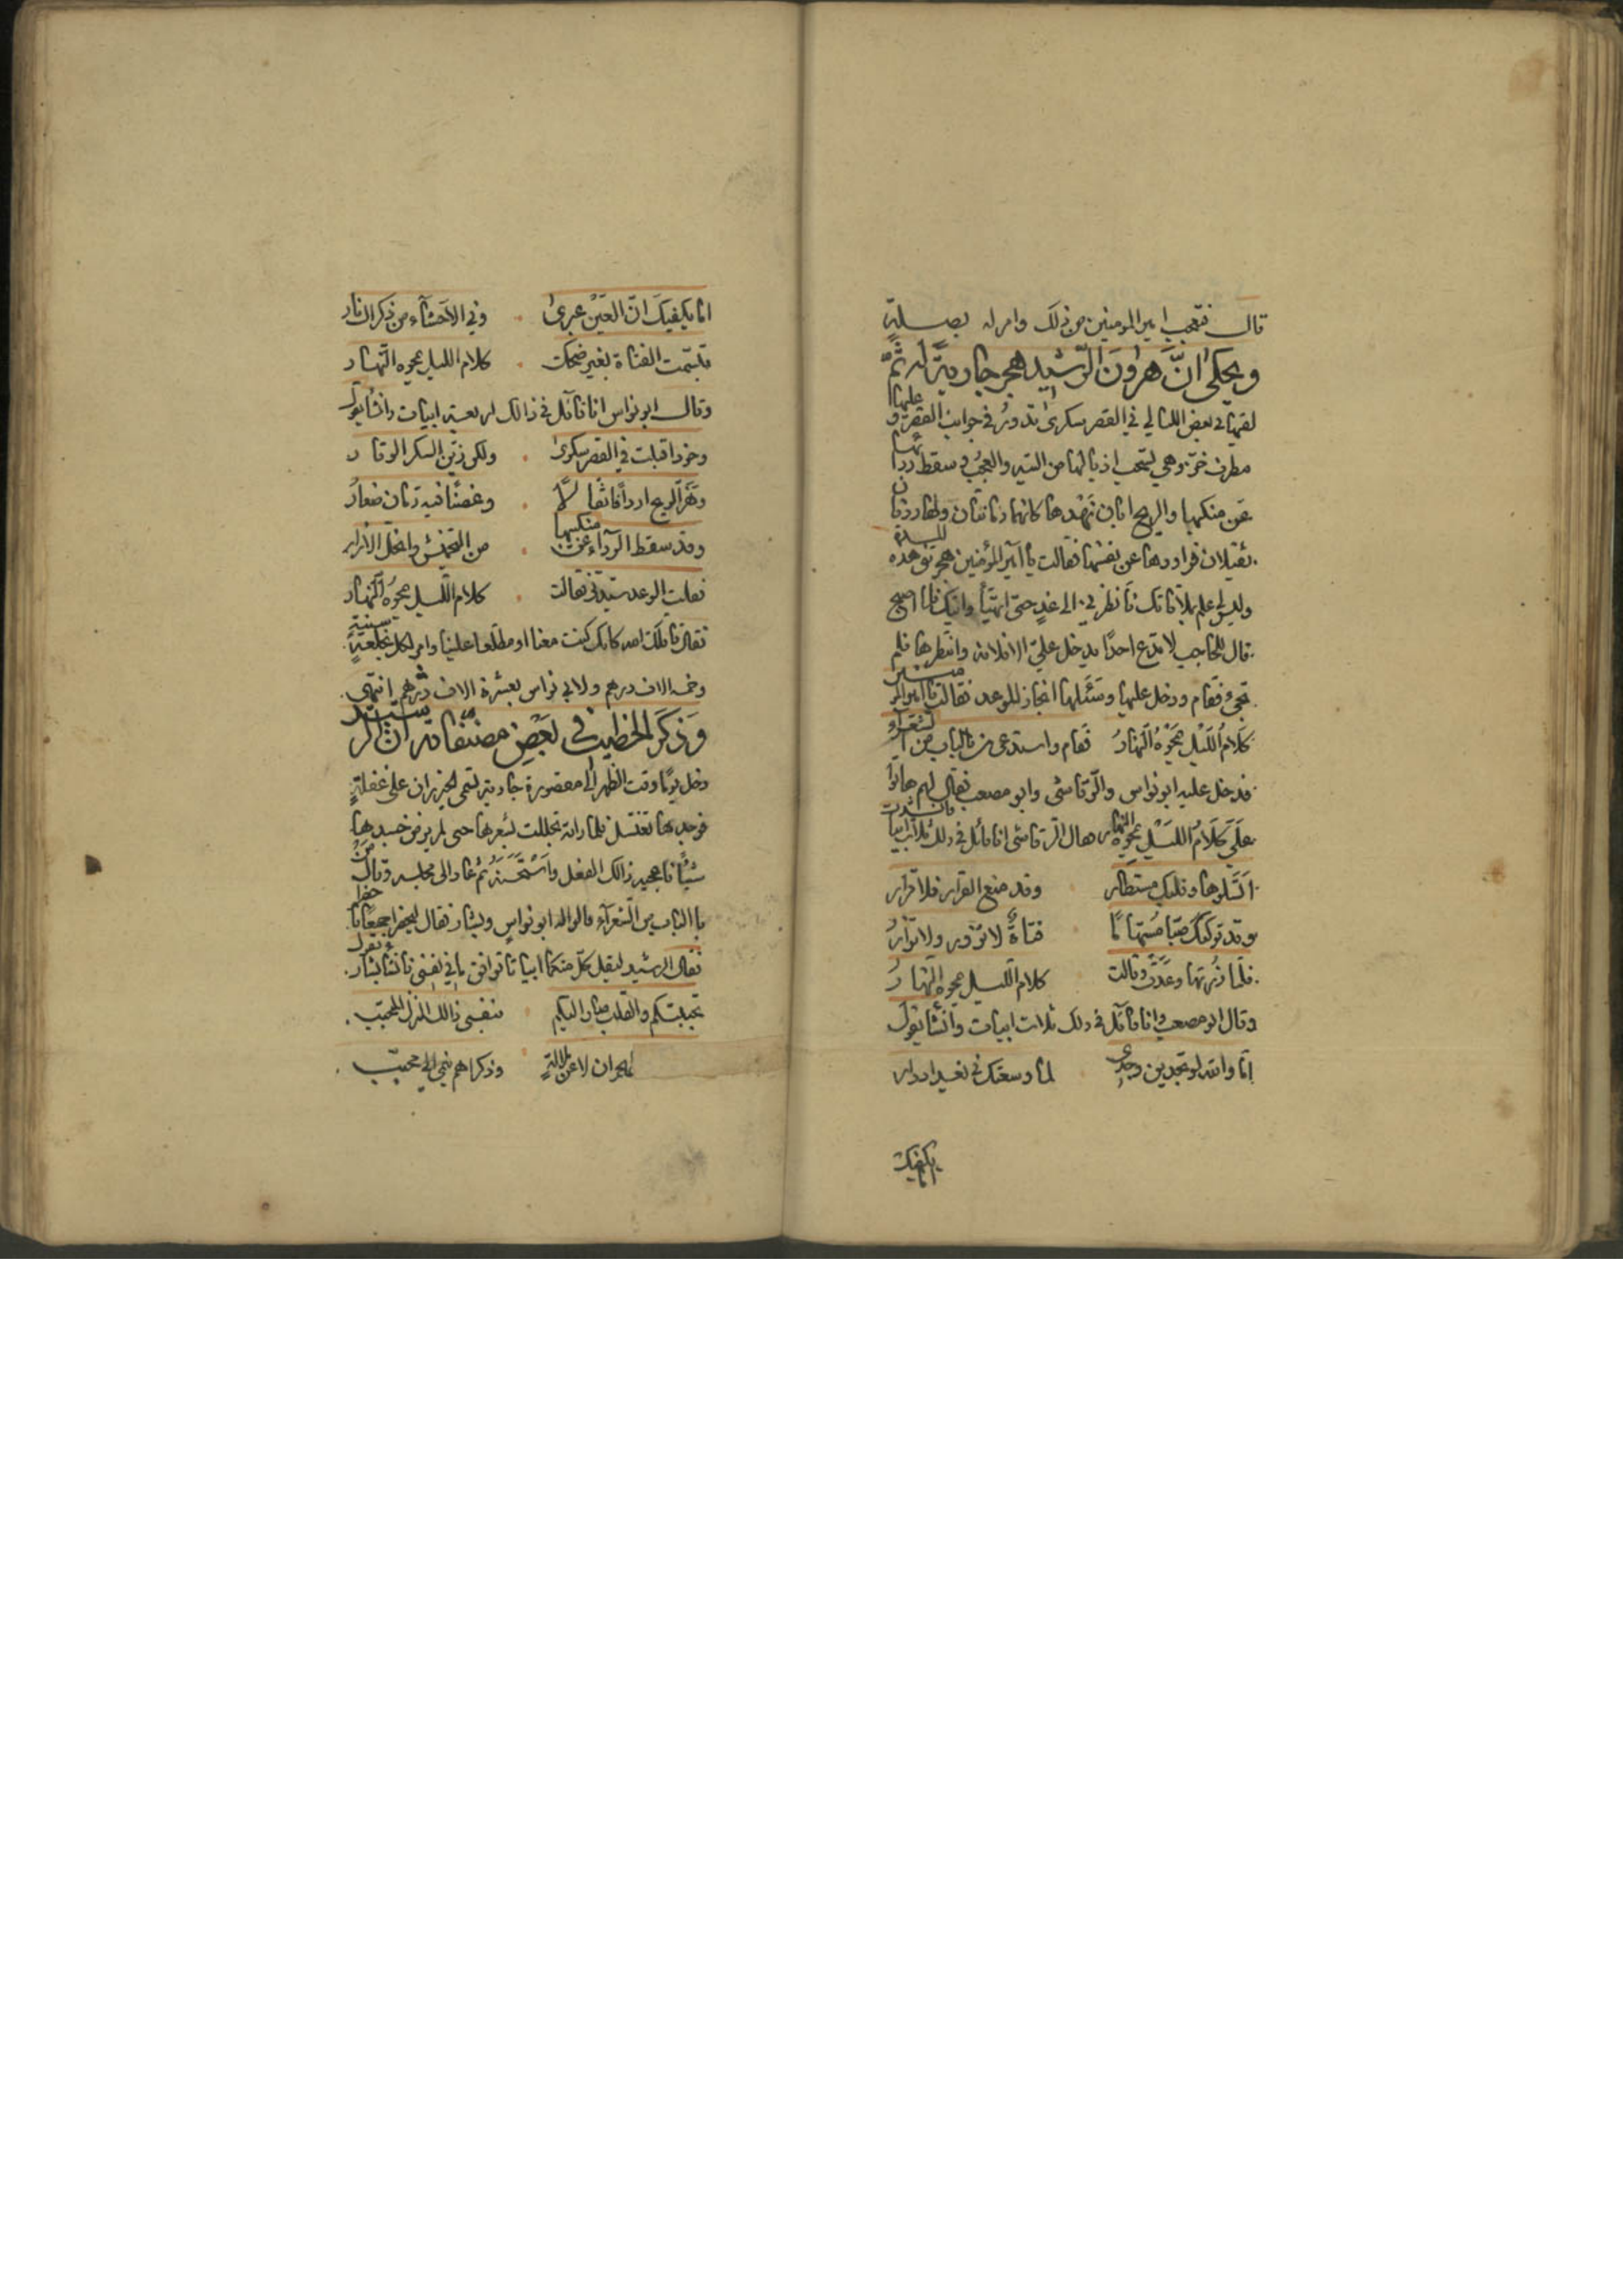 قال فتعجب امير المومنين من ذلك وامر له بصلة
ويحكى انّ هرون الرّشيد هجر جارية له ثمّ
لقيها في بعض الليالي في القصر سكرى تدور في جوانب القصر وعليها
مطرف خز وهي تسحب اذيالها من التيه والعجب وسقط رداؤها
عن منكبيها والريح ابان نهدها كانهما رمانتان ولها ردفان
ثقيلان فراودها عن نفسها فقالت يا امير المؤمنين هجرتني هذه
وليس لي علم بملاقاتك فانظرني الى غدٍ حتى اتهيّأ واتيك فلما اصبح
قال للحاجب لا تدع احدًا يدخل عليّ الا فلانة وانتظرها فلم
تجئ فقام ودخل عليها وسئلها انجاز الوعد فقالت يا امير المومنين
كلام اللّيل يمحوه النّهار فقام واستدعى من بالباب من الشعرآء
فدخل عليه ابو نواس والرّقاشى وابو مصعب فقال لهم هاتوا
على كلام الليل يمحوه النهار فقال الرقاشى انا قائل في ذلك ثلاث ابيات وانشدت
اتسلوها وقلبك مستطار وقد منع القرار فلا قرار
وقد تركتك صبّا مستهامًا فتاةٌ لا تزور ولا تزارُ
فلمّا زرتها وعدت وقالت كلام الليل يمحوه النهارُ
وقال ابو مصعب وانا قائل في ذلك ثلاث ابيات وانشأ يقول
امّا والله لو تجدين وجدى لما وسعتك في بغداد دار
اما يكفيك
اما يكفيك انّ العين عبرى وفي الاحشآء من ذكراك نار
تبسّمت الفتاة بغير ضحك كلام الليل يمحوه النّهار
وقال ابو نواس انا قآئل في ذالك اربعة ابيات وانشأ يقول
وخود اقبلت في القصر سكرى ولكن زيّن السكر الوقار
وهزّ الريح اردافًا ثقالًا وغصنًا فيه رمان صغارُ
وقد سقط الردآء عن منكبيها من التجمش وانحل الازار
فقلت الوعد سيّدتي فقالت كلام اللّيل يمحوه النّهار
فقال قاتلك الله كانك كنت معنا او مطلّعا علينا وامر لكل بخلعةٍ سنية
وخمسة الاف درهم ولابي نواس بعشرة الاف درهم انتهى
وذكر الخطيب في بعض مصنّفاته ان الرشيد
دخل يومًا وقت الظهر الى مقصورة جارية تسمى الخيزران على غفلةٍ
فوجدها تغتسل فلما راته تجللت بشعرها حتى لم ير من جسدها
شيئًا فاعجبه ذالك الفعل واستحسنه ثم عاد الى مجلسه وقال من
بالباب من الشعرآء قالوا له ابو نواس وبشار فقال ليحضرا جميعًا فحضرا
فقال الرشيد ليقل كلّ منكما ابياتا توافق ما في نفسي فانشأ بشار يقول
تجببتكم والقلب صار اليكم بنفسى ذالك المنزل المحبّب